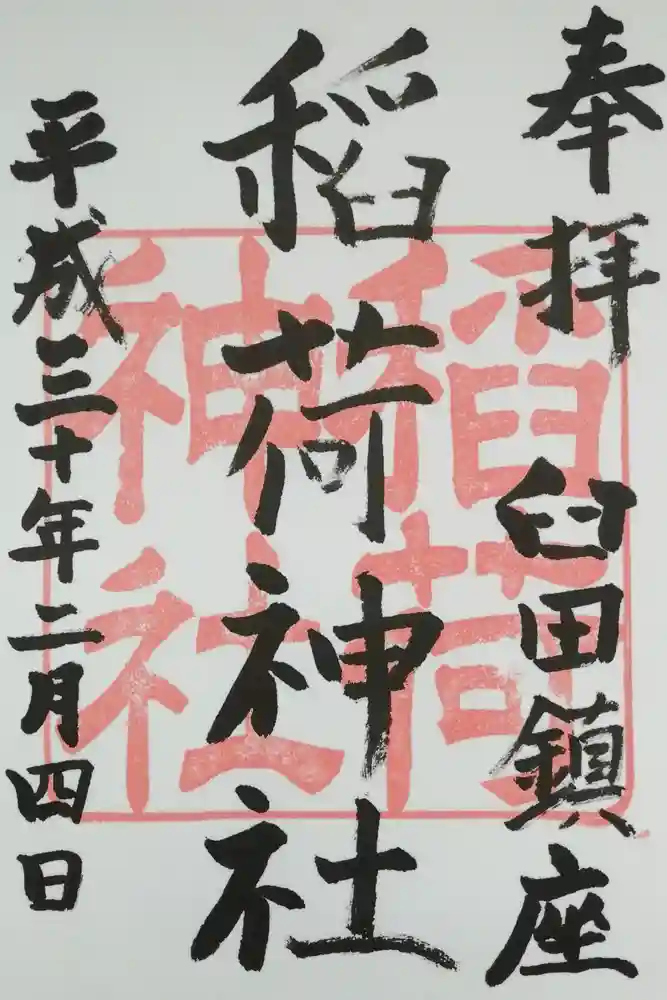 奉拝
臼田鎮座
稲荷神社
平成三十年二月四日
稲荷
神社